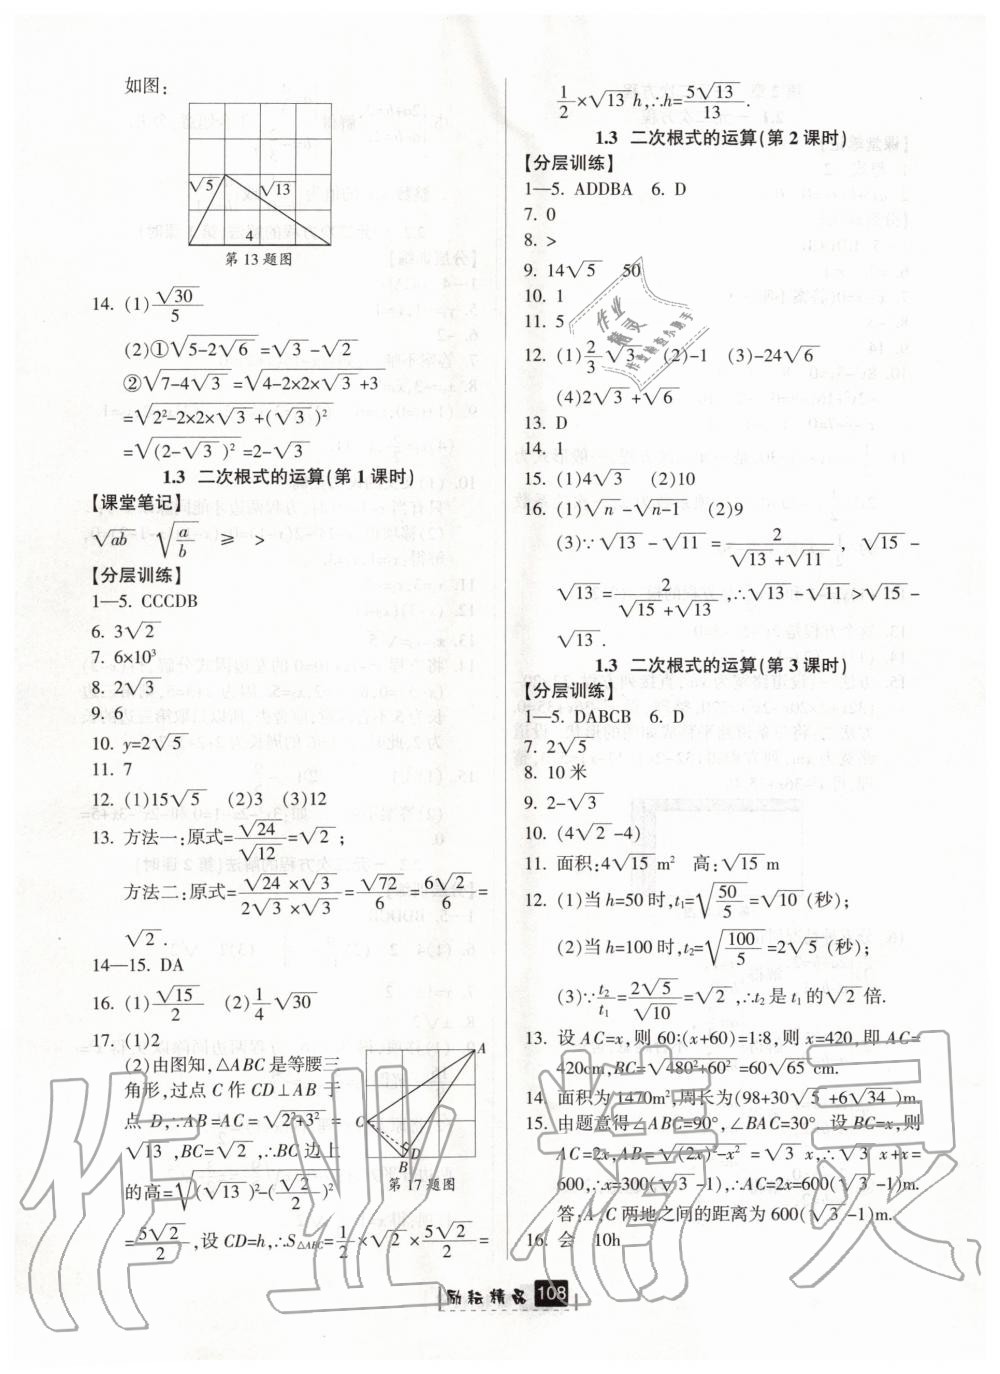 如图:
√5
√13
4
第13题图
14. (1)√30/5
(2)①√(5-2√6)=√3-√2
②√(7-4√3)=√(4-2×2×√3+3)
=√(2²-2×2×√3+(√3)²)
=√((2-√3)²)=2-√3
1.3 二次根式的运算(第1课时)
【课堂笔记】
√ab √(a/b) ≥ >
【分层训练】
1—5. CCCDB
6. 3√2
7. 6×10³
8. 2√3
9. 6
10. y=2√5
11. 7
12. (1)15√5 (2)3 (3)12
13. 方法一:原式=√24/√12=√2;
方法二:原式=(√24×√3)/(2√3×√3)=√72/6=6√2/6=
√2.
14—15. DA
16. (1)√15/2 (2)1/4√30
17. (1)2
(2)由图知,△ABC是等腰三
角形,过点C作CD⊥AB于
点D,∵AB=AC=√(2²+3²)=
√13,BC=√2,∴BC边上
的高=√((√13)²-(√2/2)²)
=5√2/2,设CD=h,∴S△ABC=1/2×√2×5√2/2=
A
C
D
B
第17题图
1/2×√13h,∴h=5√13/13.
1.3 二次根式的运算(第2课时)
【分层训练】
1—5. ADDBA 6. D
7. 0
8. >
9. 14√5 50
10. 1
11. 5
12. (1)2/3√3 (2)-1 (3)-24√6
(4)2√3+√6
13. D
14. 1
15. (1)4√3 (2)10
16. (1)√n-√(n-1) (2)9
(3)∵√13-√11=2/(√13+√11), √15-
√13=2/(√15+√13),∴√13-√11>√15-
√13.
1.3 二次根式的运算(第3课时)
【分层训练】
1—5. DABCB 6. D
7. 2√5
8. 10米
9. 2-√3
10. (4√2-4)
11. 面积:4√15m² 高:√15m
12. (1)当h=50时,t₁=√(50/5)=√10(秒);
(2)当h=100时,t₂=√(100/5)=2√5(秒);
(3)∵t₂/t₁=2√5/√10=√2,∴t₂是t₁的√2倍.
13. 设AC=x,则60:(x+60)=1:8,则x=420,即AC=
420cm,BC=√(480²+60²)=60√65cm.
14. 面积为1470m²,周长为(98+30√5+6√34)m.
15. 由题意得∠ABC=90°,∠BAC=30°.设BC=x,则
AC=2x,AB=√((2x)²-x²)=√3x,∴√3x+x=
600,∴x=300(√3-1),∴AC=2x=600(√3-1)m.
答:A,C两地之间的距离为600(√3-1)m.
16. 会 10h
励耘精品 108
作业精灵
作业精灵
作业检查小助手